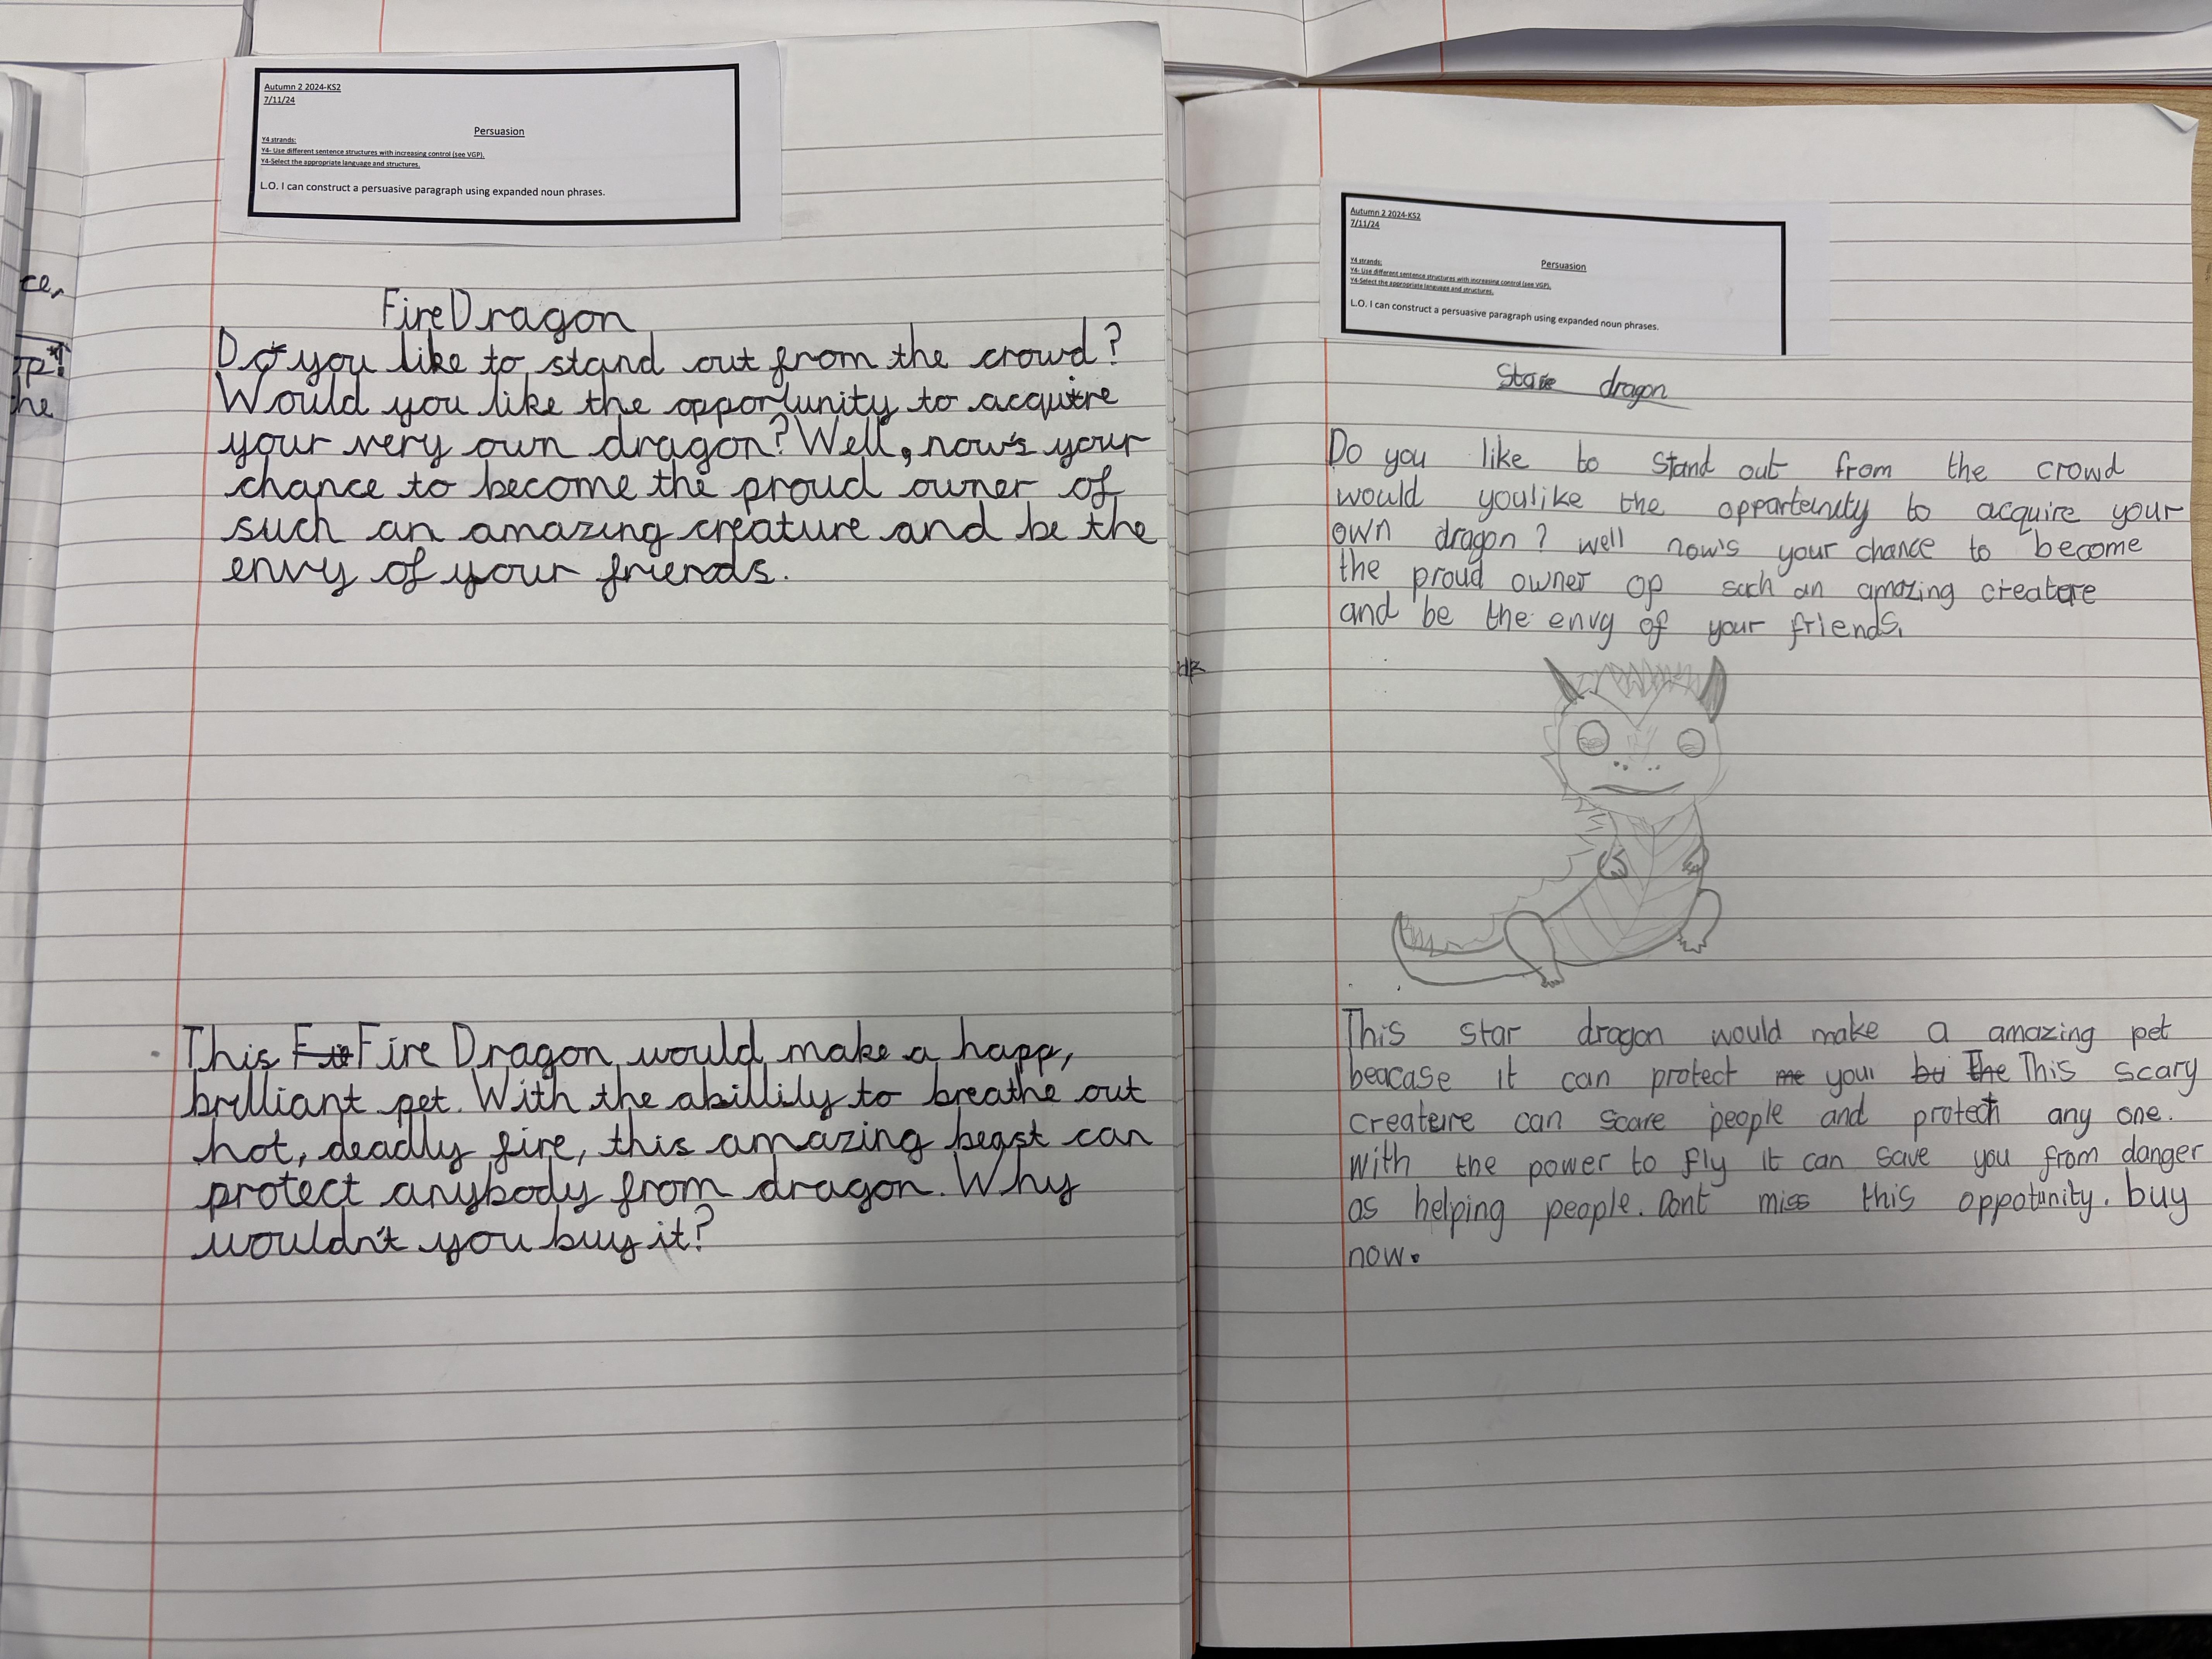 Autumn 2 2024-KS2
7/11/24
Persuasion
Y4 strands:
Y4- Use different sentence structures with increasing control (see VGP).
Y4-Select the appropriate language and structures.
L.O. I can construct a persuasive paragraph using expanded noun phrases.
Fire Dragon
Do you like to stand out from the crowd?
Would you like the opportunity to acquire
your very own dragon? Well, now's your
chance to become the proud owner of
such an amazing creature and be the
envy of your friends.
This Fire Dragon would make a happ,
brilliant pet. With the abillily to breathe out
hot, deadly fire, this amazing beast can
protect anybody from dragon. Why
wouldn't you buy it?
Autumn 2 2024-KS2
7/11/24
Persuasion
Y4 strands:
Y4- Use different sentence structures with increasing control (see VGP).
Y4-Select the appropriate language and structures.
L.O. I can construct a persuasive paragraph using expanded noun phrases.
dragon
Do you like to stand out from the crowd
would youlike the oppartenuty to acquire your
own dragon? well now's your chance to become
the proud owner op such an amazing createre
and be the envy of your friends.
This star dragon would make a amazing pet
beacase it can protect me your bu the This scary
createre can scare people and protect any one.
With the power to fly it can save you from danger
as helping people. Dont miss this oppotunity. buy
now.
ce,
op!
he